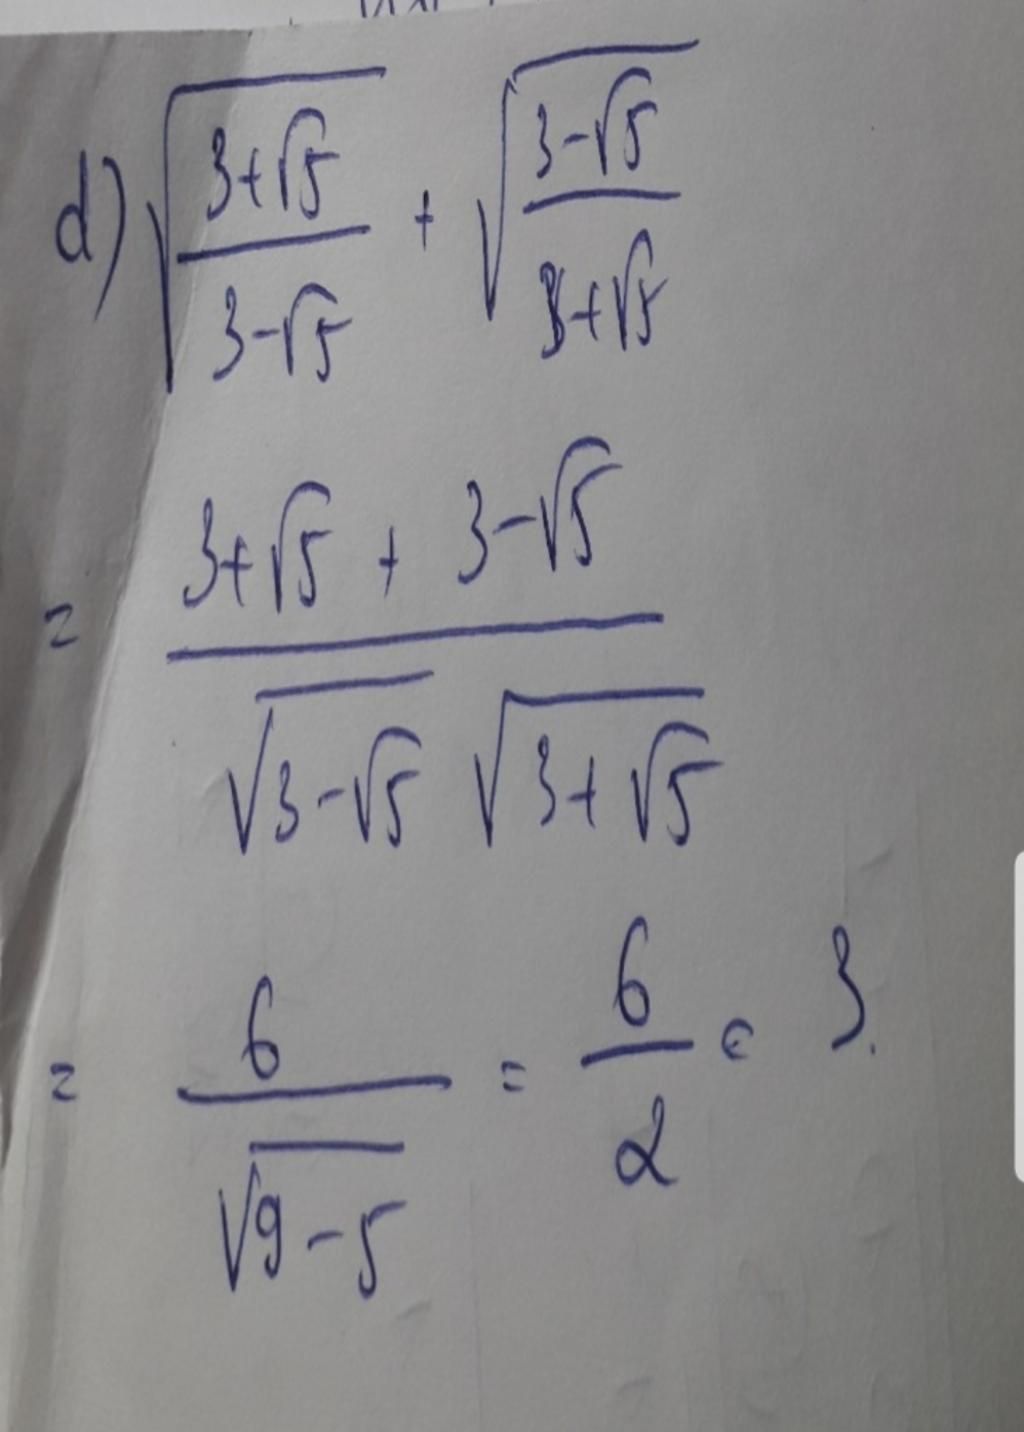 d) √((3+√5)/(3-√5)) + √((3-√5)/(3+√5))
= (3+√5 + 3-√5)/(√(3-√5) √(3+√5))
= 6/√(9-5) = 6/2 = 3.